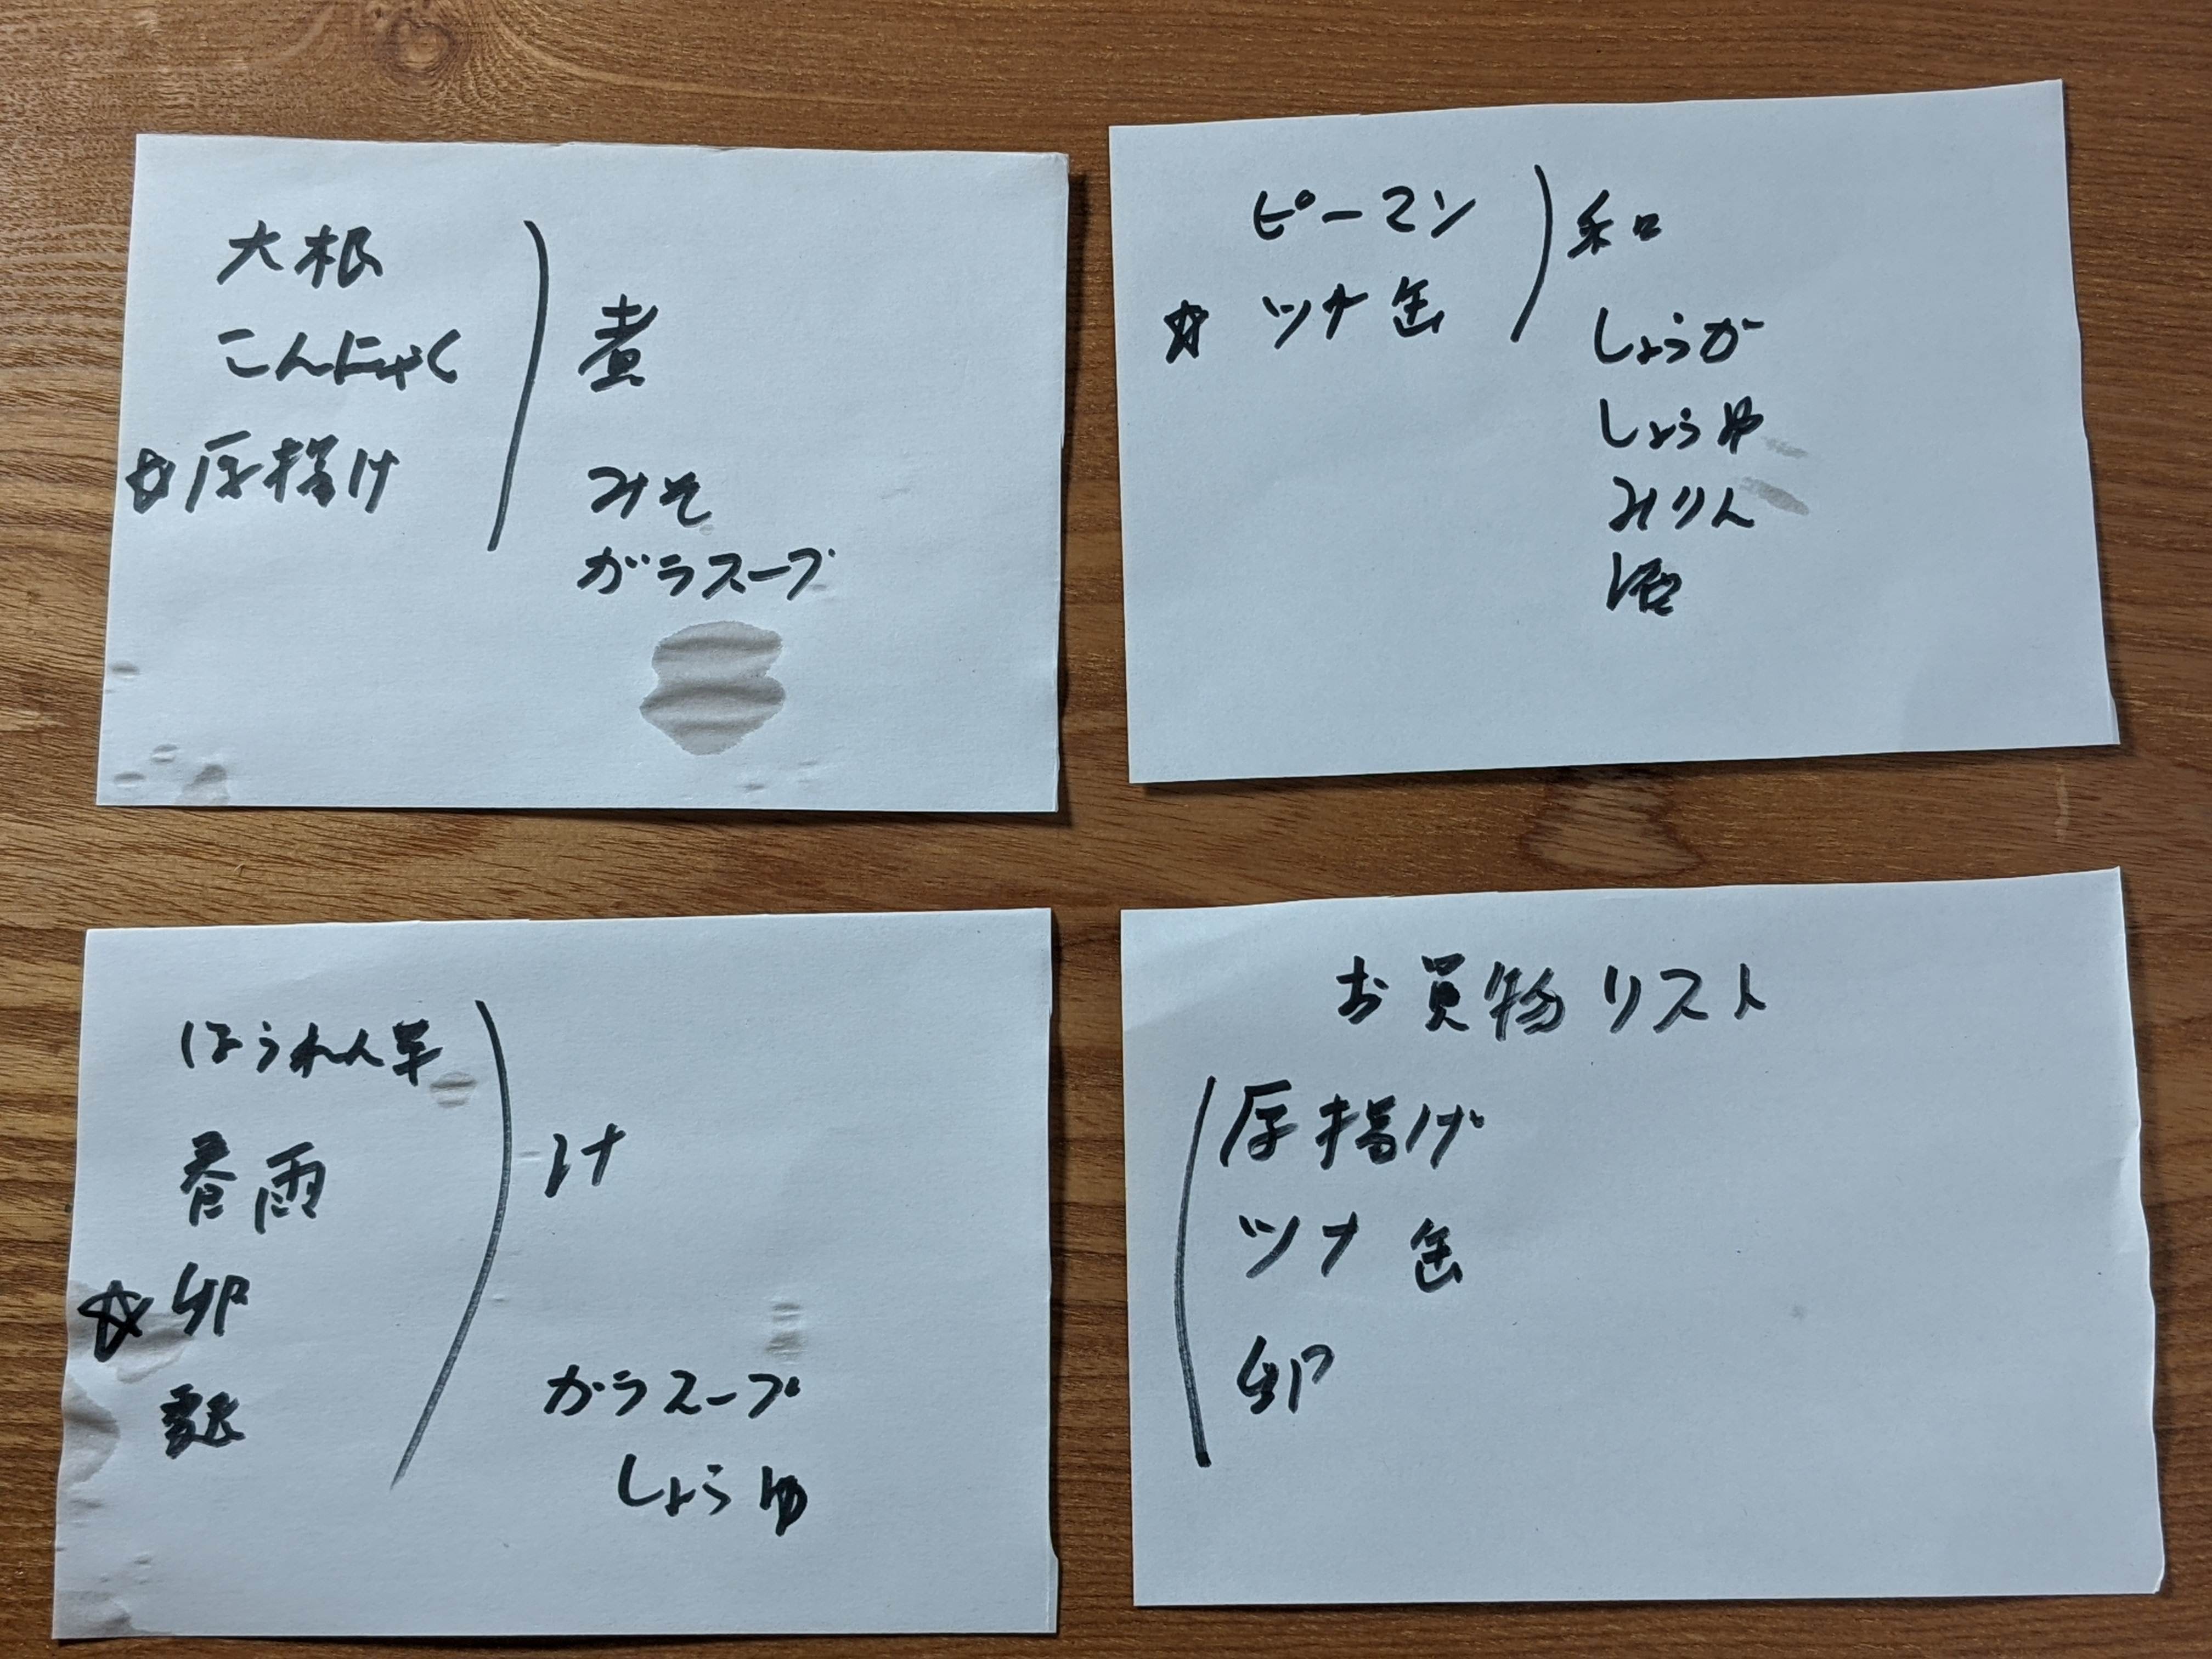 大根
こんにゃく
☆厚揚け
煮
みそ
ガラスープ
ピーマン
☆ ツナ缶
和
しょうが
しょうゆ
みりん
酒
ほうれん草
春雨
☆卵
汁
ガラスープ
しょうゆ
お買物リスト
厚揚げ
ツナ缶
卵